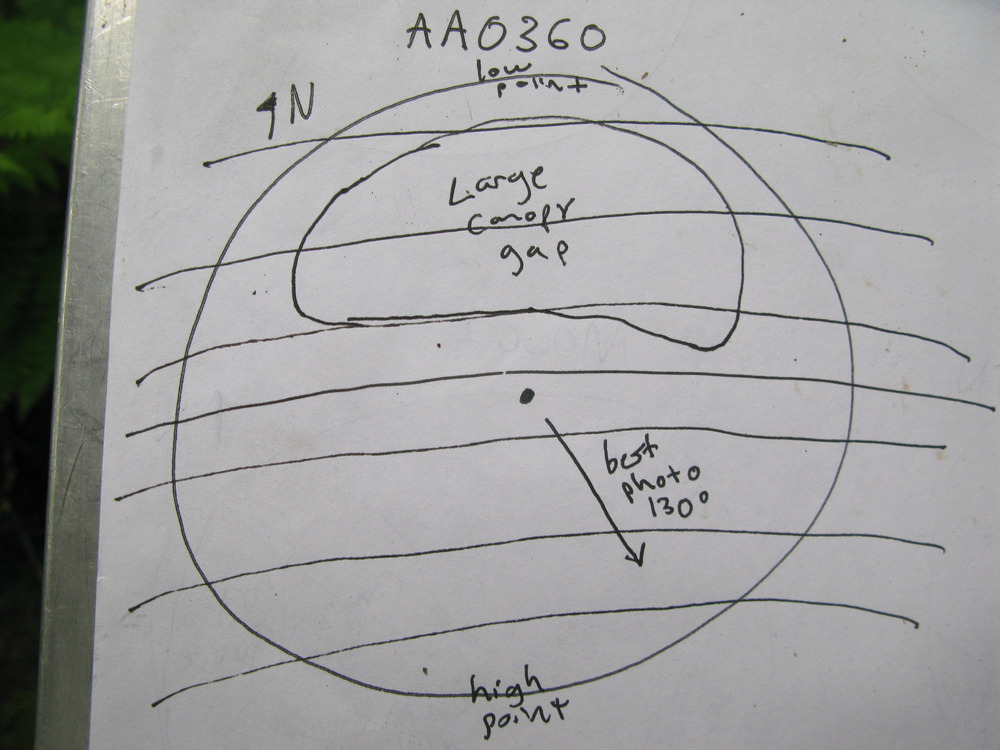 AA0360
low
point
N
Large
canopy
gap
best
photo
130°
high
point